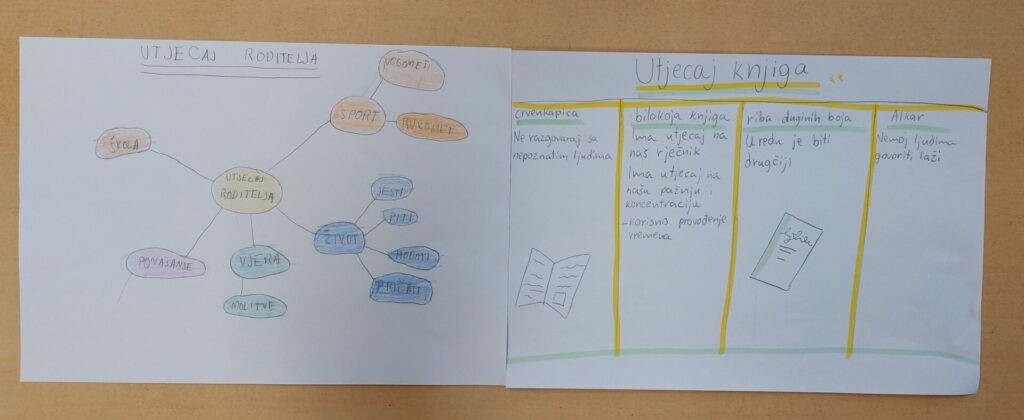 UTJECAJ RODITELJA
NOGOMET
SPORT
RUKOMET
ŠKOLA
UTJECAJ
RODITELJA
JESTI
PITI
ŽIVOT
HODATI
PRIČATI
VJERA
MOLITVE
Utjecaj knjiga
crvenkapica
Ne razgovaraj sa
nepoznatim ljudima
bilokoja knjiga
Ima utjecaj na
naš rječnik
Ima utjecaj na
našu pažnju i
koncentraciju
-korisno provođenje
vremena
riba duginih boja
U redu je biti
drugčiji
Alkar
Nemoj ljudima
govoriti laži